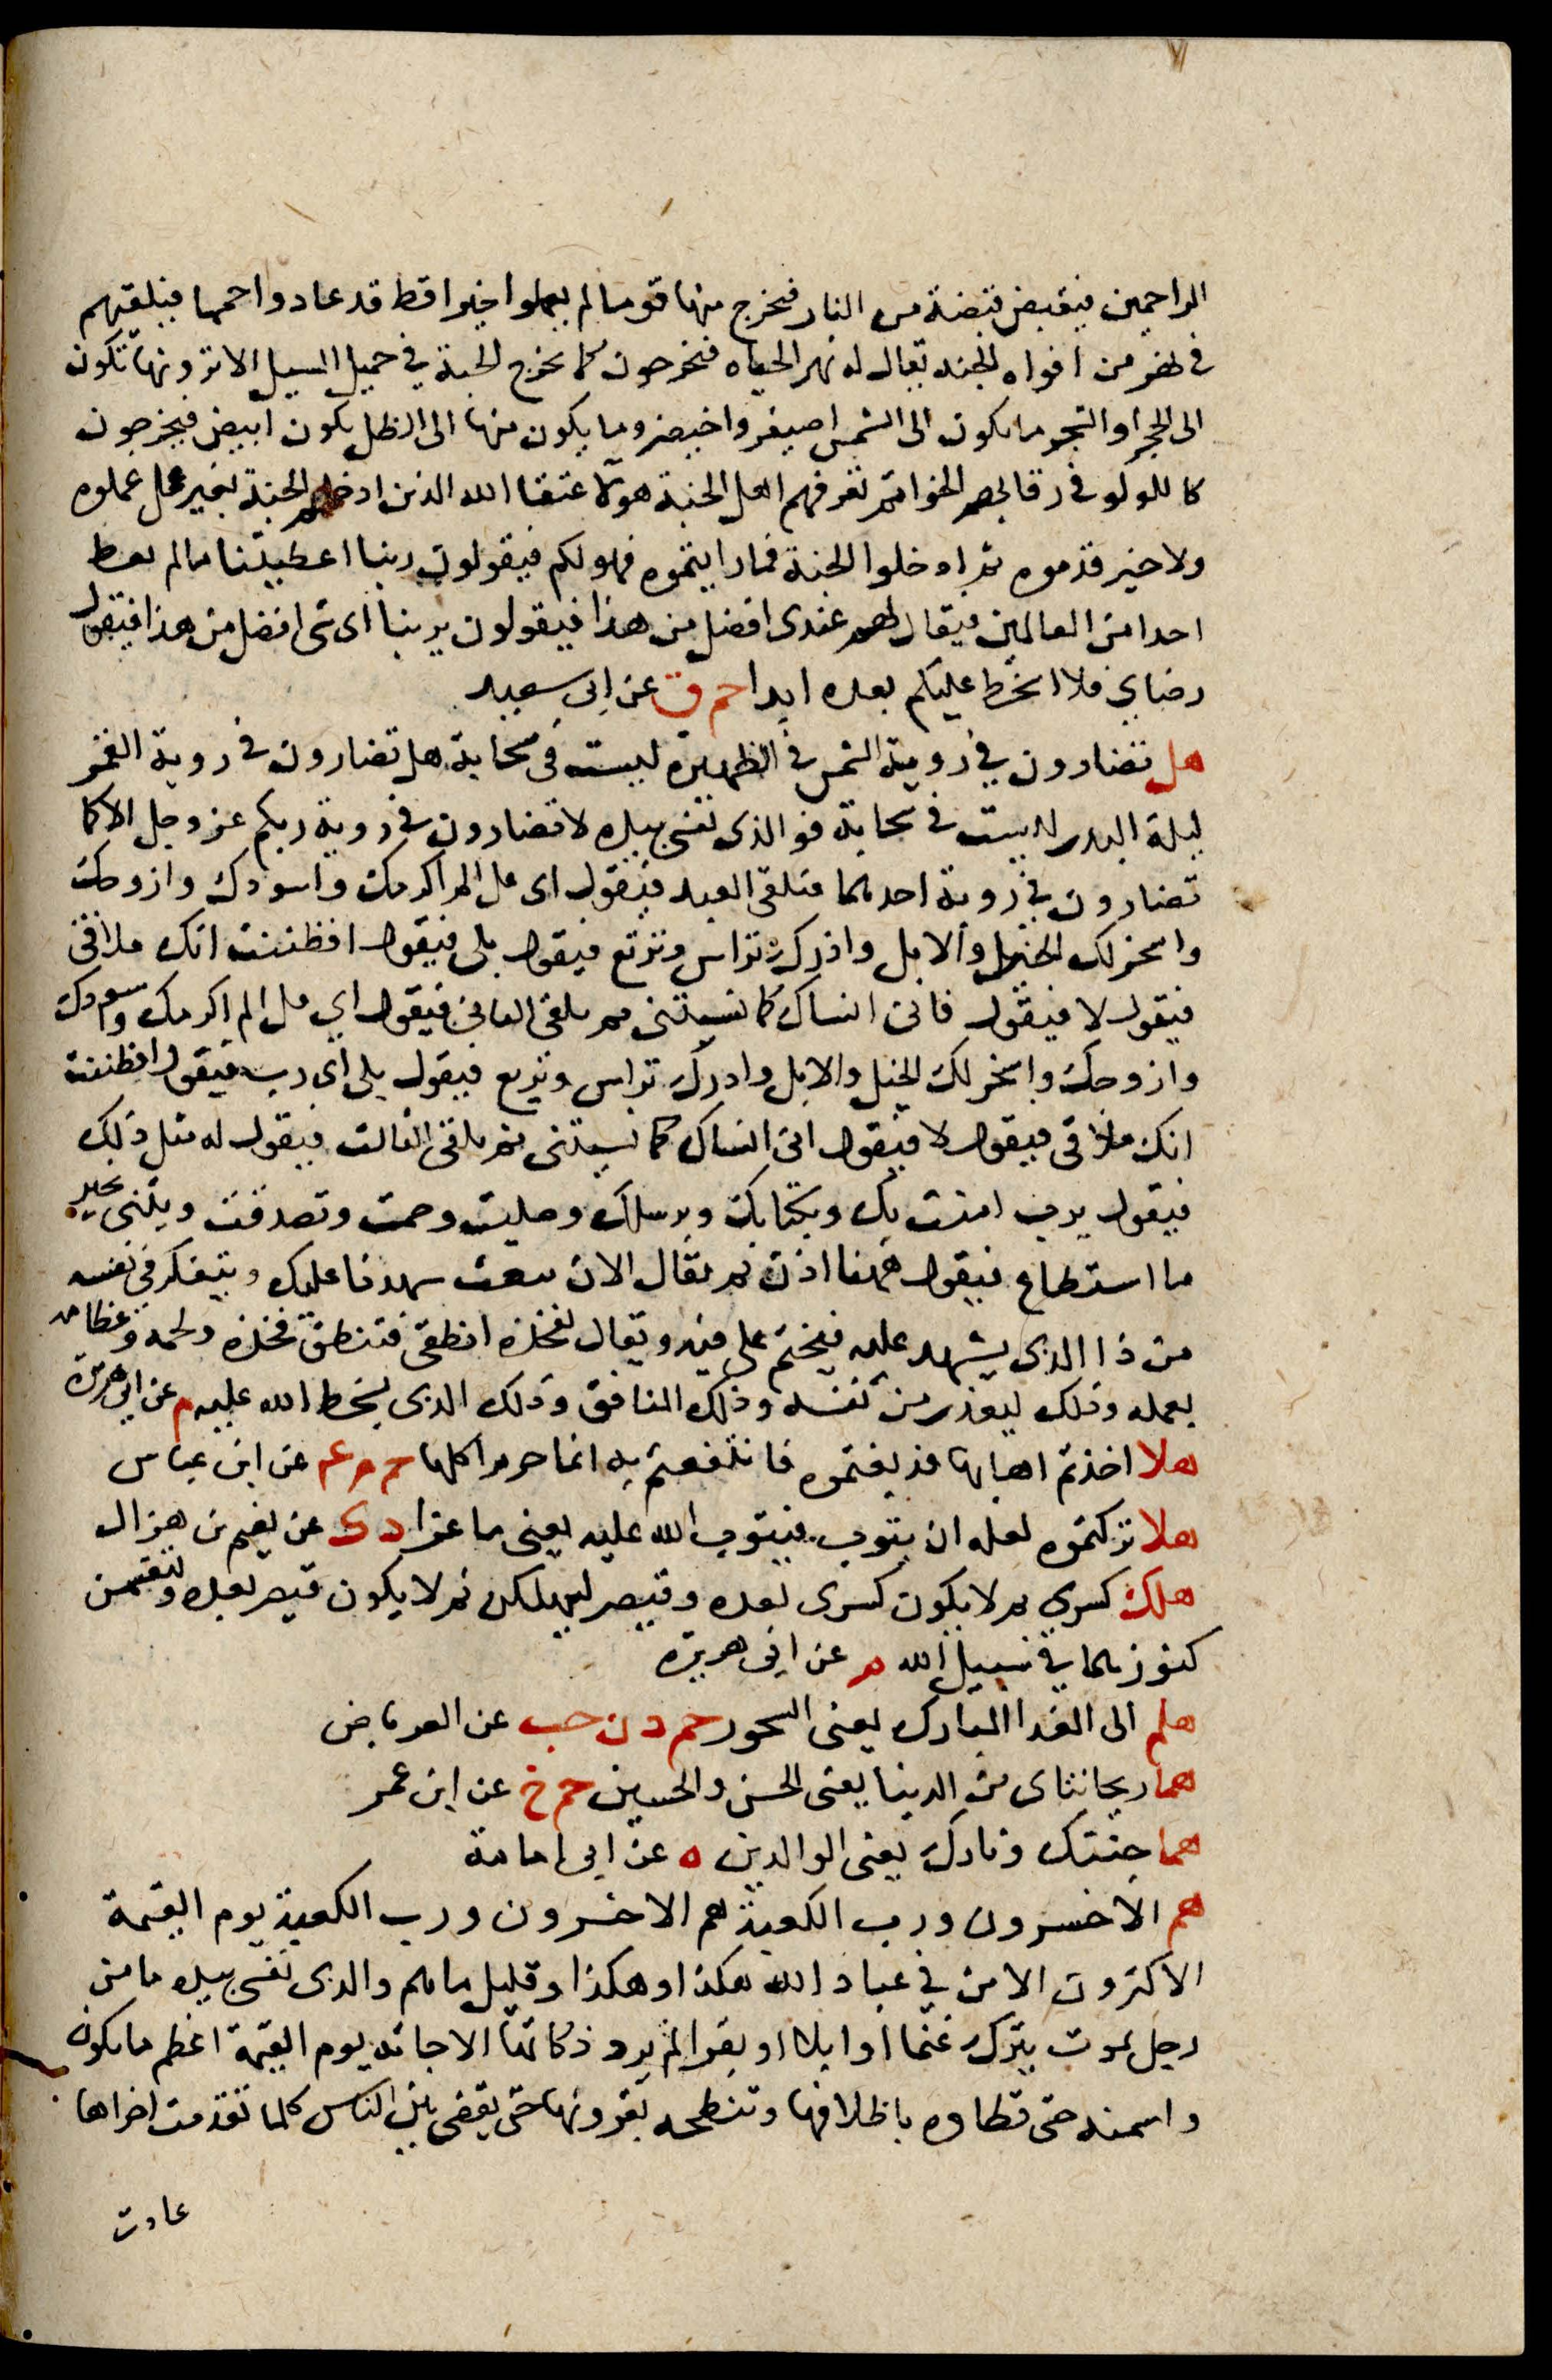 الراحمين فيقبض قبضة من النار فيخرج منها قوما لم يعملوا خيرا قط قد عادوا حمما فيلقيهم
في نهر من افواه الجنه يقال له نهر الحياه فيخرجون كما تخرج الحبة في حميل السيل الا ترونها تكون
الى الحجر او الشجر ما يكون الى الشمس اصيفر واخيضر وما يكون منها الى الظل يكون ابيض فيخرجون
كاللولو في رقابهم الخواتم تعرفهم اهل الجنة هولاء عتقا الله الذين ادخلهم الجنة بغير عمل عملوه
ولا خير قدموه ثم ادخلوا الجنة فما رايتموه فهو لكم فيقولون ربنا اعطيتنا مالم تعط
احدا من العالمين فيقال لهم عندى افضل من هذا فيقولون يربنا اى شى افضل من هذا فيقول
رضاي فلا اسخط عليكم بعده ابدا حم ق عن ابي سعيد
هل تضارون في روية الشمس في الظهيرة ليست في سحابة هل تضارون في روية القمر
ليلة البدر ليست في سحابة فو الذى نفسي بيده لا تضارون في روية ربكم عز وجل الا كما
تضارون في روية احدهما فيلقى العبد فيقول اى فل الم اكرمك واسودك وازوجك
واسخر لك الخيل والابل واذرك تراس وتربع فيقول بلى فيقول افظننت انك ملاقي
فيقول لا فيقول فاني انساك كما نسيتنى ثم يلقى الثاني فيقول اي فل الم اكرمك واسودك
وازوجك واسخر لك الخيل والابل وادرك تراس وتربع فيقول بلى اى رب فيقول افظننت
انك ملاقى فيقول لا فيقول انى انساك كما نسيتنى ثم يلقى الثالث فيقول له مثل ذلك
فيقول يرب امنت بك وبكتابك وبرسلك وصليت وصمت وتصدقت ويثنى بخير
ما استطاع فيقول ههنا اذن ثم يقال الان نبعث شهدنا عليك ويتفكر في نفسه
من ذا الذى يشهد عليه فيختم على فيه ويقال لفخذه انطقى فتنطق فخذه ولحمه وعظامه
بعمله وذلك ليعذر من نفسه وذلك المنافق وذلك الذى يسخط الله عليه م عن ابي هريرة
هلا اخذتم اهابها فدبغتموه فانتفعتم به انما حرم اكلها حم م ع عن ابن عباس
هلا تركتموه لعله ان يتوب فيتوب الله عليه يعنى ماعزا د ك عن نعيم بن هزال
هلك كسرى ثم لا يكون كسرى بعده وقيصر ليهلكن ثم لا يكون قيصر بعده ولتقسمن
كنوزهما في سبيل الله م عن ابي هريرة
هلم الى الغدا المبارك يعنى السحور حم د ن حب عن العرباض
هما ريحانتاى من الدنيا يعنى الحسن والحسين حم خ عن ابن عمر
هما جنتك ونارك يعنى الوالدين ه عن ابي امامة
هم الاخسرون ورب الكعبة هم الاخسرون ورب الكعبة يوم القيمة
الاكثرون الا من في عباد الله هكذا وهكذا وقليل ماهم والذى نفسي بيده ما من
رجل يموت يترك غنما او ابلا او بقرا لم يرد زكاتها الا جاته يوم القيمة اعظم ما يكون
واسمنه حتى تطاوه باظلافها وتنطحه بقرونها حتى يقضى بين الناس كلما تقدمت اخراها
عادت